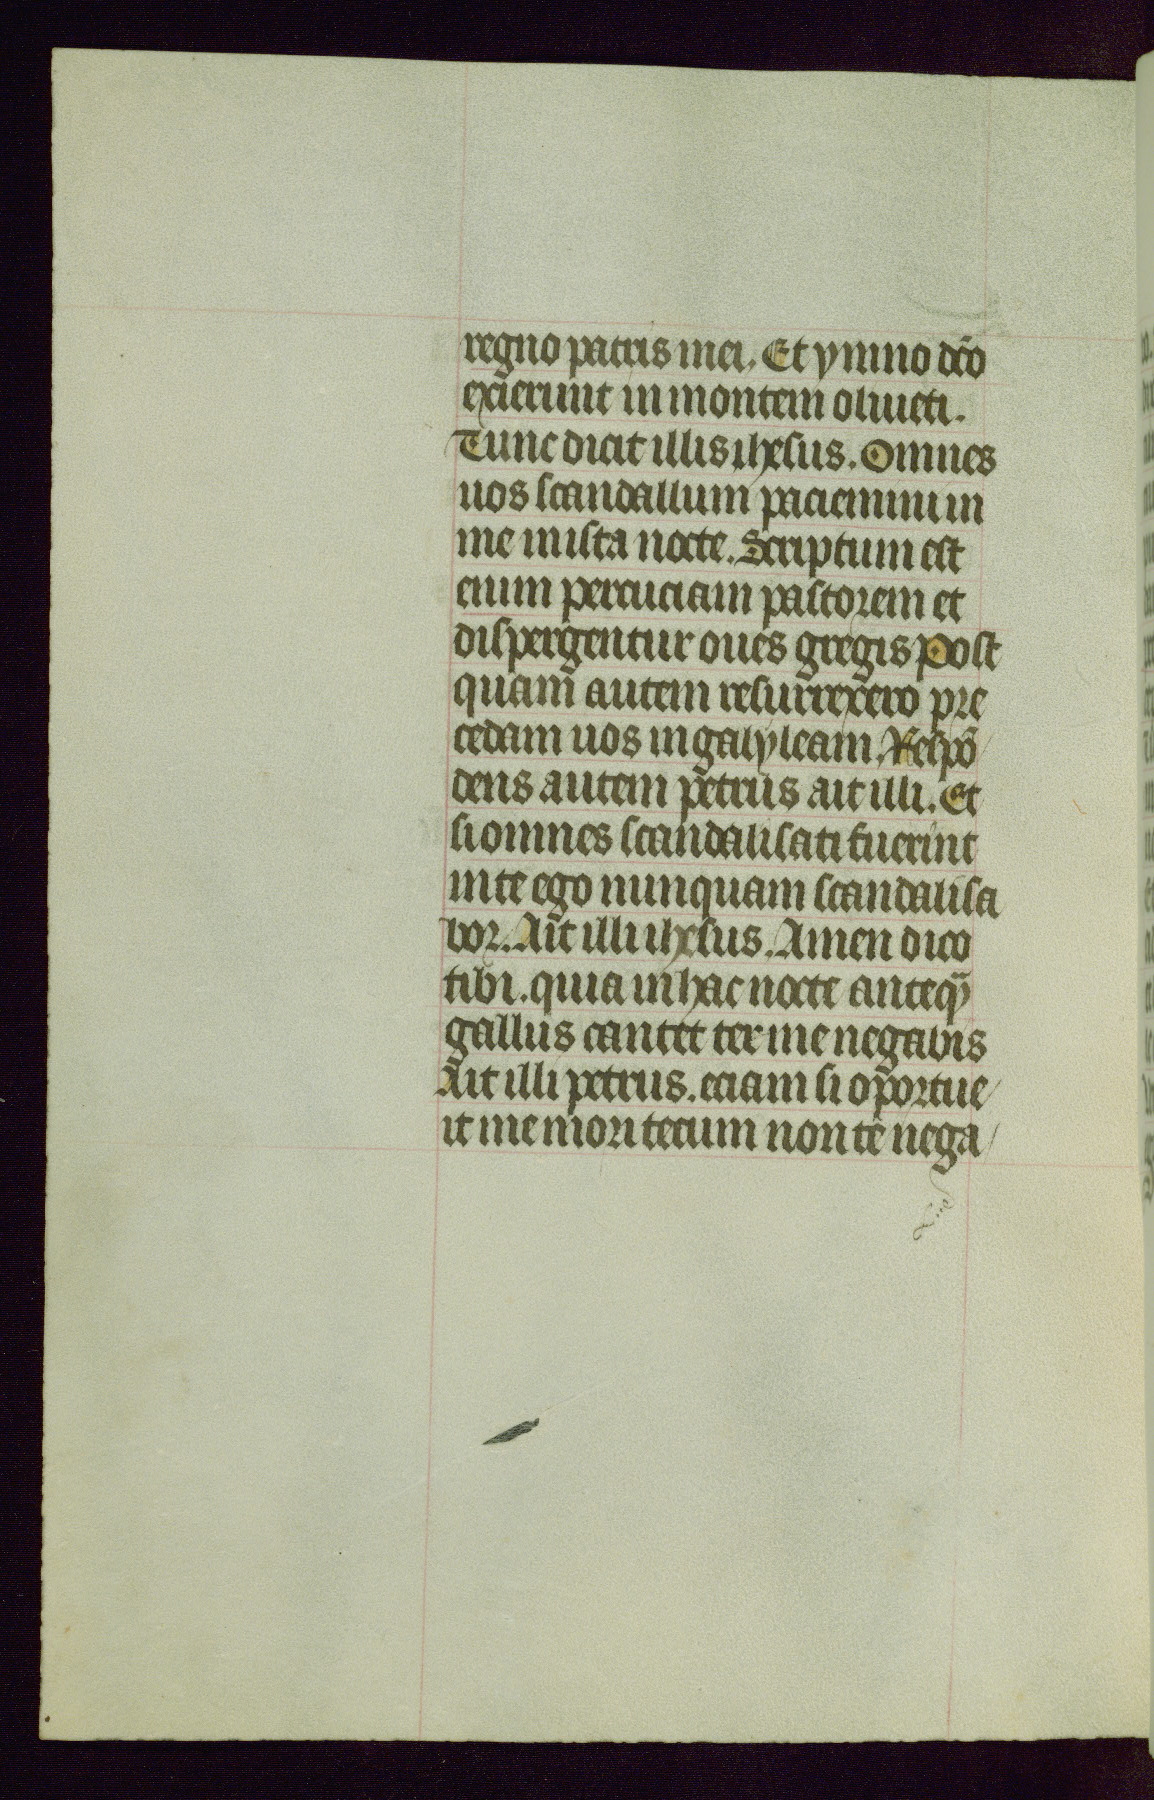 regno patris mei. Et ymno dc̄o
exierunt in montem oliueti.
Tunc dicit illis ihesus. Omnes
uos scandallum paciemini in
me in ista nocte. Scriptum est
enim percuciam pastorem et
dispergentur oues gregis Post
quam autem resurrexero pre
cedam uos in galyleam. Respō
dens autem petrus ait illi. Et
si omnes scandalisati fuerint
in te ego nunquam scandalisa
bor. Ait illi ihesus. Amen dico
tibi. quia in hac nocte anteq̄
gallus cantet ter me negabis
Ait illi petrus. eciam si oportue
it me mori tecum non te nega